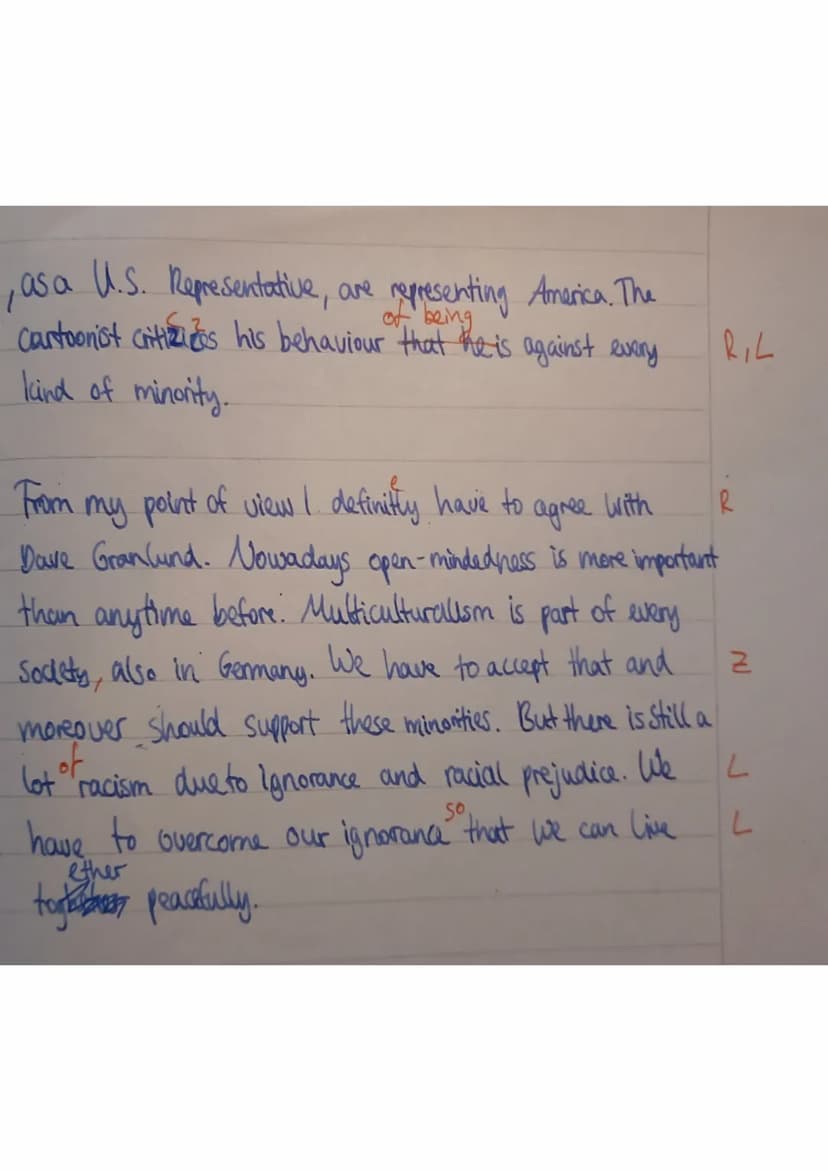 , as a U.S. Representative, are representing America. The
of being
cartoonist critizices his behaviour that he is against every R, L
kind of minority.
From my point of view I definitly have to agree with R
Dave Granlund. Nowadays open-mindedness is more important
than anytime before. Multiculturalism is part of every
society, also in Germany. We have to accept that and Z
moreover should support these minorities. But there is still a
lot of racism due to ignorance and racial prejudice. We L
have to overcome our ignorance so that we can live L
together peacefully.